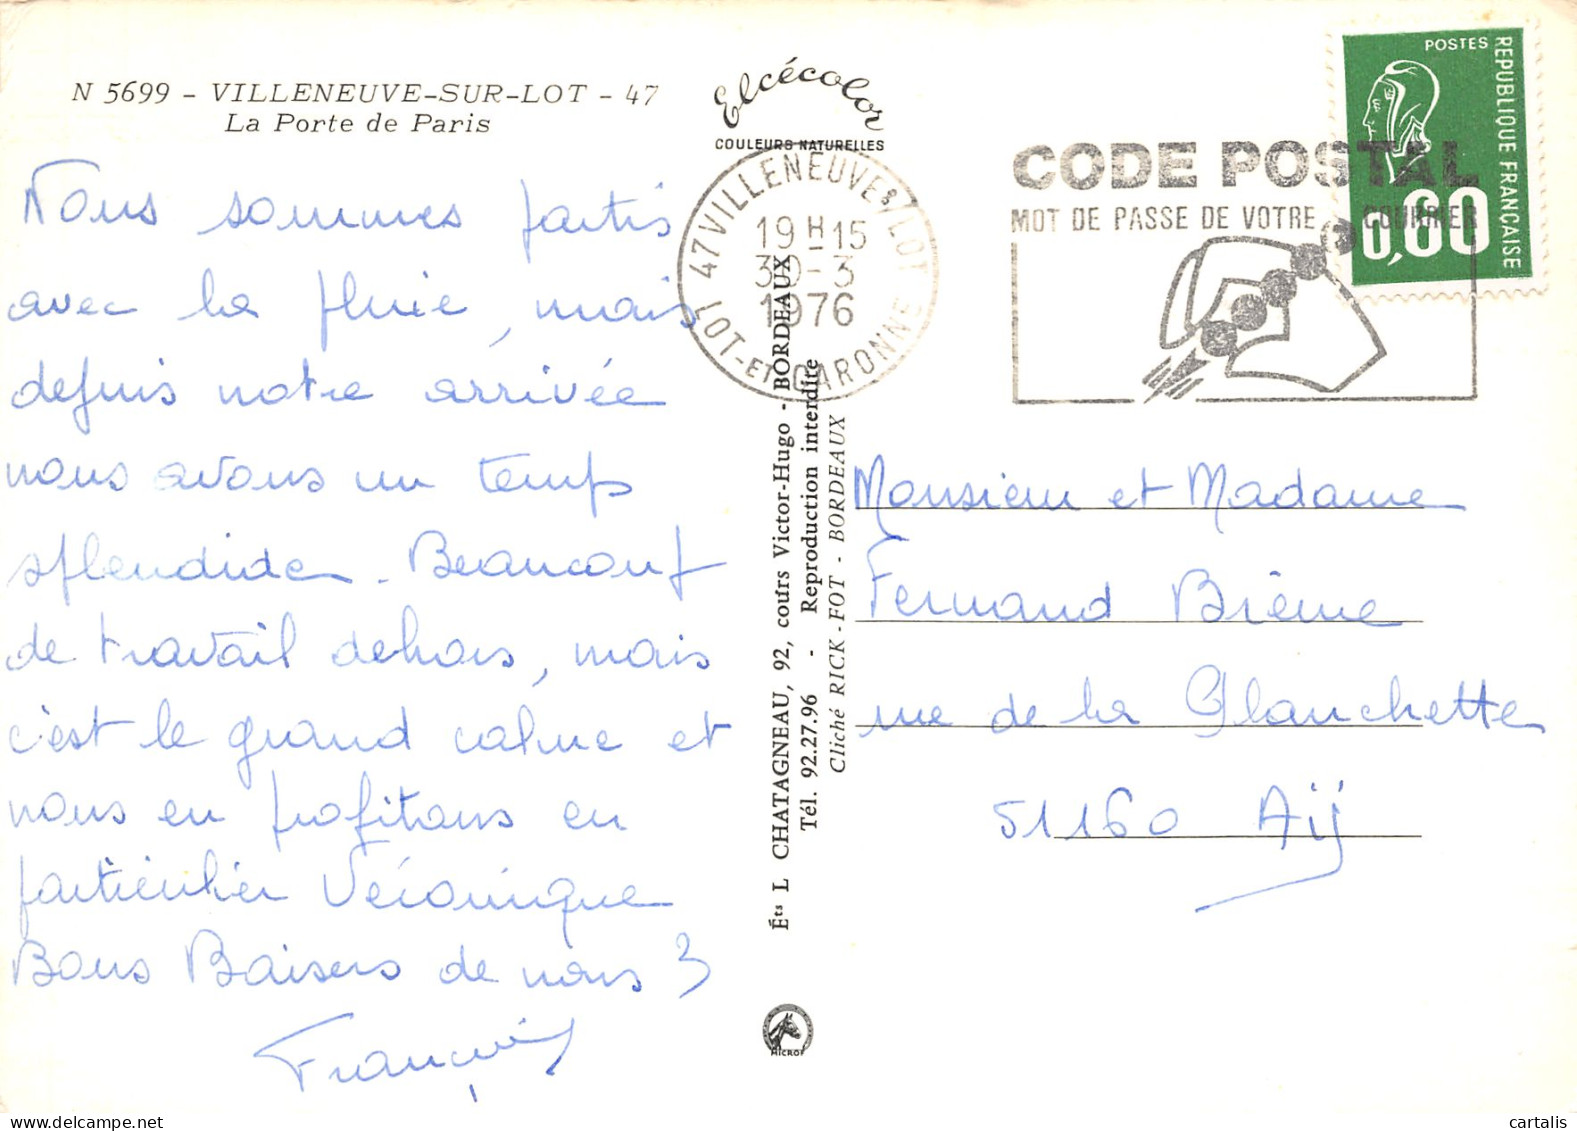 N 5699 - VILLENEUVE-SUR-LOT - 47
La Porte de Paris
Nous sommes partis
avec la pluie, mais
depuis notre arrivée
nous avons un temps
splendide. Beaucoup
de travail dehors, mais
c'est le grand calme et
nous en profitons en
particulier Véronique
Bons Baisers de nous 3
Elcécolor
COULEURS NATURELLES
47 VILLENEUVE S/LOT
19 H 15
30-3
1976
LOT-ET-GARONNE
Éts L CHATAGNEAU, 92, cours Victor-Hugo - BORDEAUX
Tél. 92.27.96 - Reproduction interdite
Cliché RICK-FOT - BORDEAUX
MICROF
CODE POSTAL
MOT DE PASSE DE VOTRE COURRIER
POSTES
REPUBLIQUE FRANÇAISE
0,60
Monsieur et Madame
Fernand Brème
rue de la Planchette
51160 Aÿ
cartalis